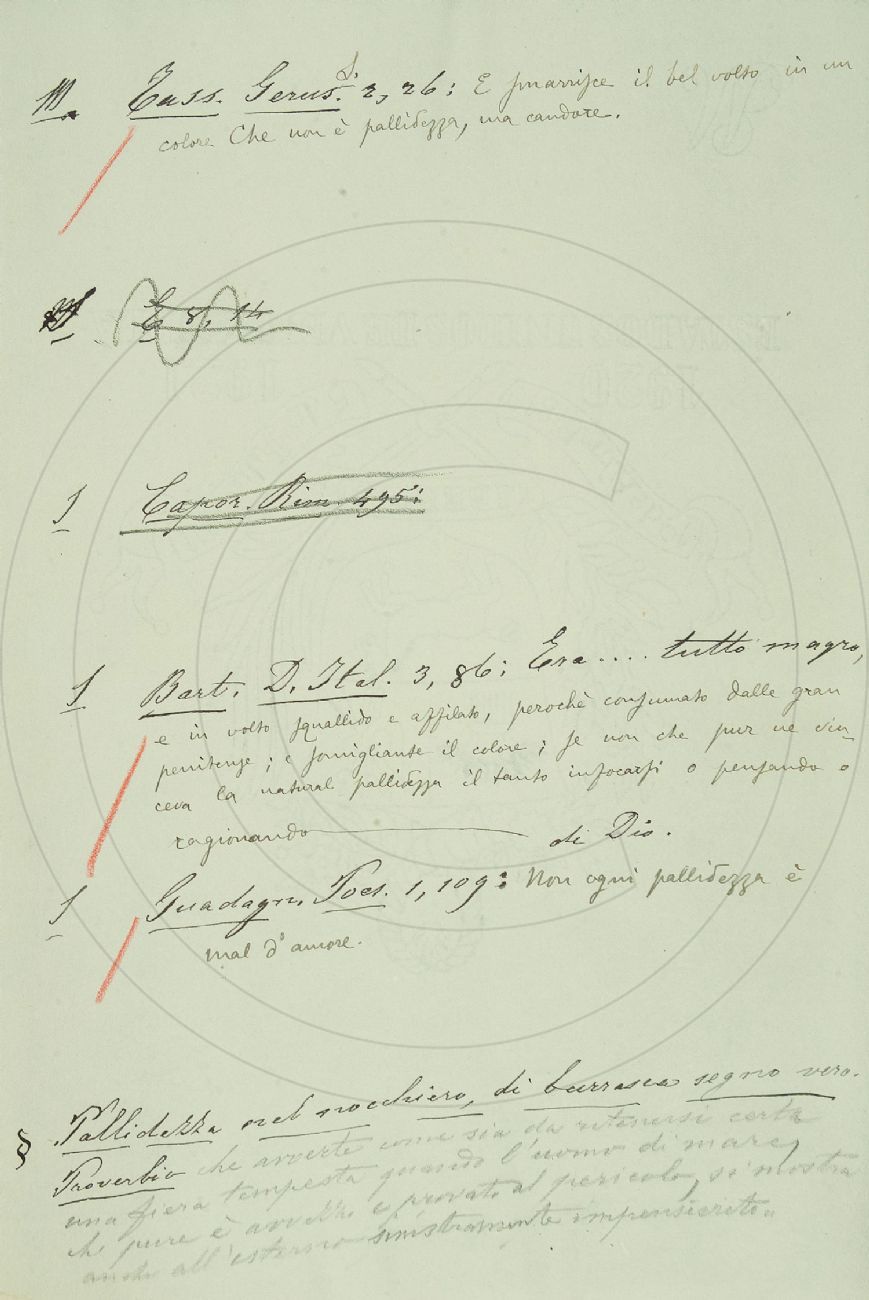 M. Tass. Gerus. L. 2, 26: E smarrisce il bel volto in un
colore Che non è pallidezza, ma candore.
E 8, 14
S Capor. Rim. 495:
S Bart. D. Ital. 3, 86: Era .... tutto magro,
e in volto squallido e affilato, perochè consumato dalle gran
penitenze; e somigliante il colore; se non che pur ne vin-
ceva la natural pallidezza il tanto infocarsi o pensando o
ragionando di Dio.
S Guadagn. Poes. 1, 109: Non ogni pallidezza è
mal d'amore.
§ Pallidezza nel nocchiero, di burrasca segno vero.
Proverbio che avverte come sia da ritenersi certa
una fiera tempesta quando l'uomo di mare,
che pure è avvezzo e provato al pericolo, si mostra
anche all'esterno sinistramente impensierito.